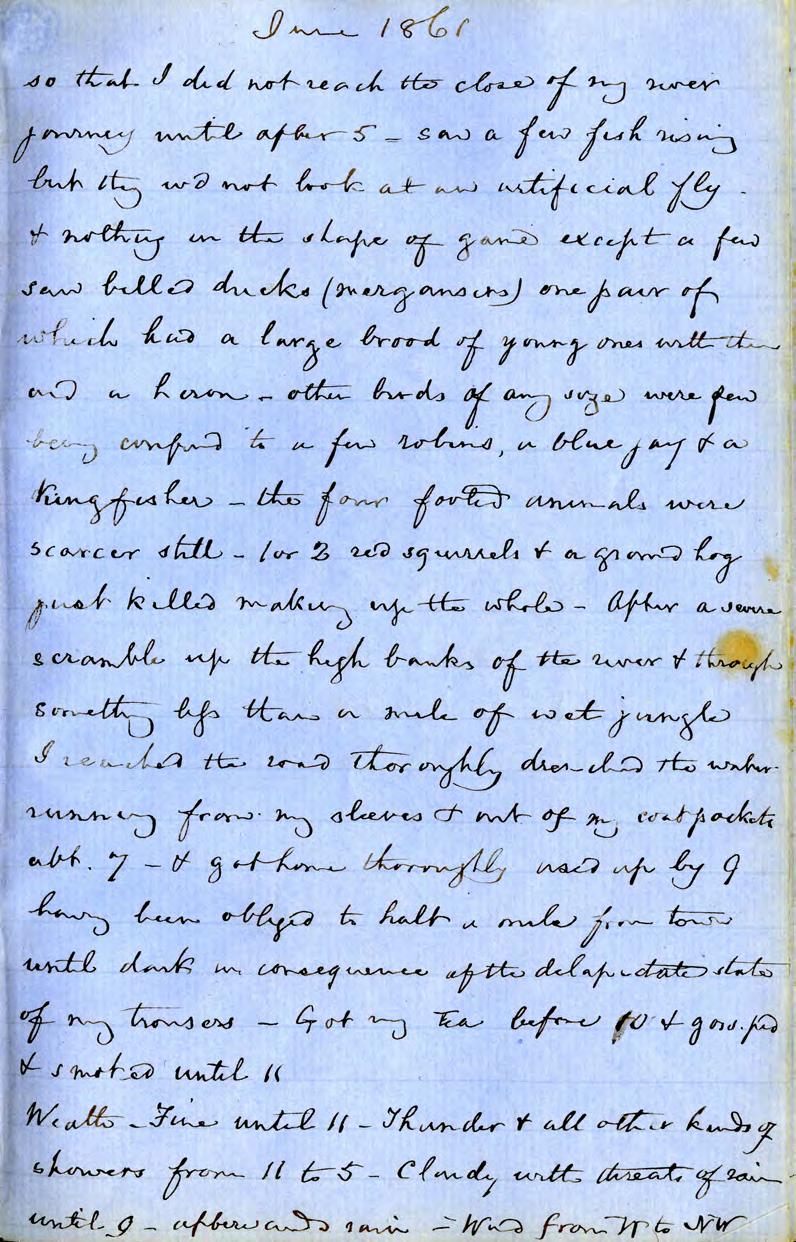 June 1861
so that I did not reach the close of my river
journey until after 5 – saw a few fish rising
but they wd not look at an artificial fly -
& nothing in the shape of game except a few
saw billed ducks (mergansers) one pair of
which had a large brood of young ones with them
and a heron – other birds of any size were few
being confined to a few robins, a blue jay & a
Kingfisher – the four footed animals were
scarcer still – 1 or 2 red squirrels & a ground hog
just killed making up the whole – After a severe
scramble up the high banks of the river & through
something less than a mile of wet jungle
I reached the road thoroughly drenched the water
running from my sleeves & out of my coat pockets
abt. 7 – & got home thoroughly used up by 9
having been obliged to halt a mile from town
until dark in consequence of the delapidated state
of my trousers – Got my Tea before 10 & gossiped
& smoked until 11
Weather – Fine until 11 – Thunder & all other kinds of
showers from 11 to 5 – Cloudy with threats of rain
until 9 – afterwards rain – Wind from W to NW